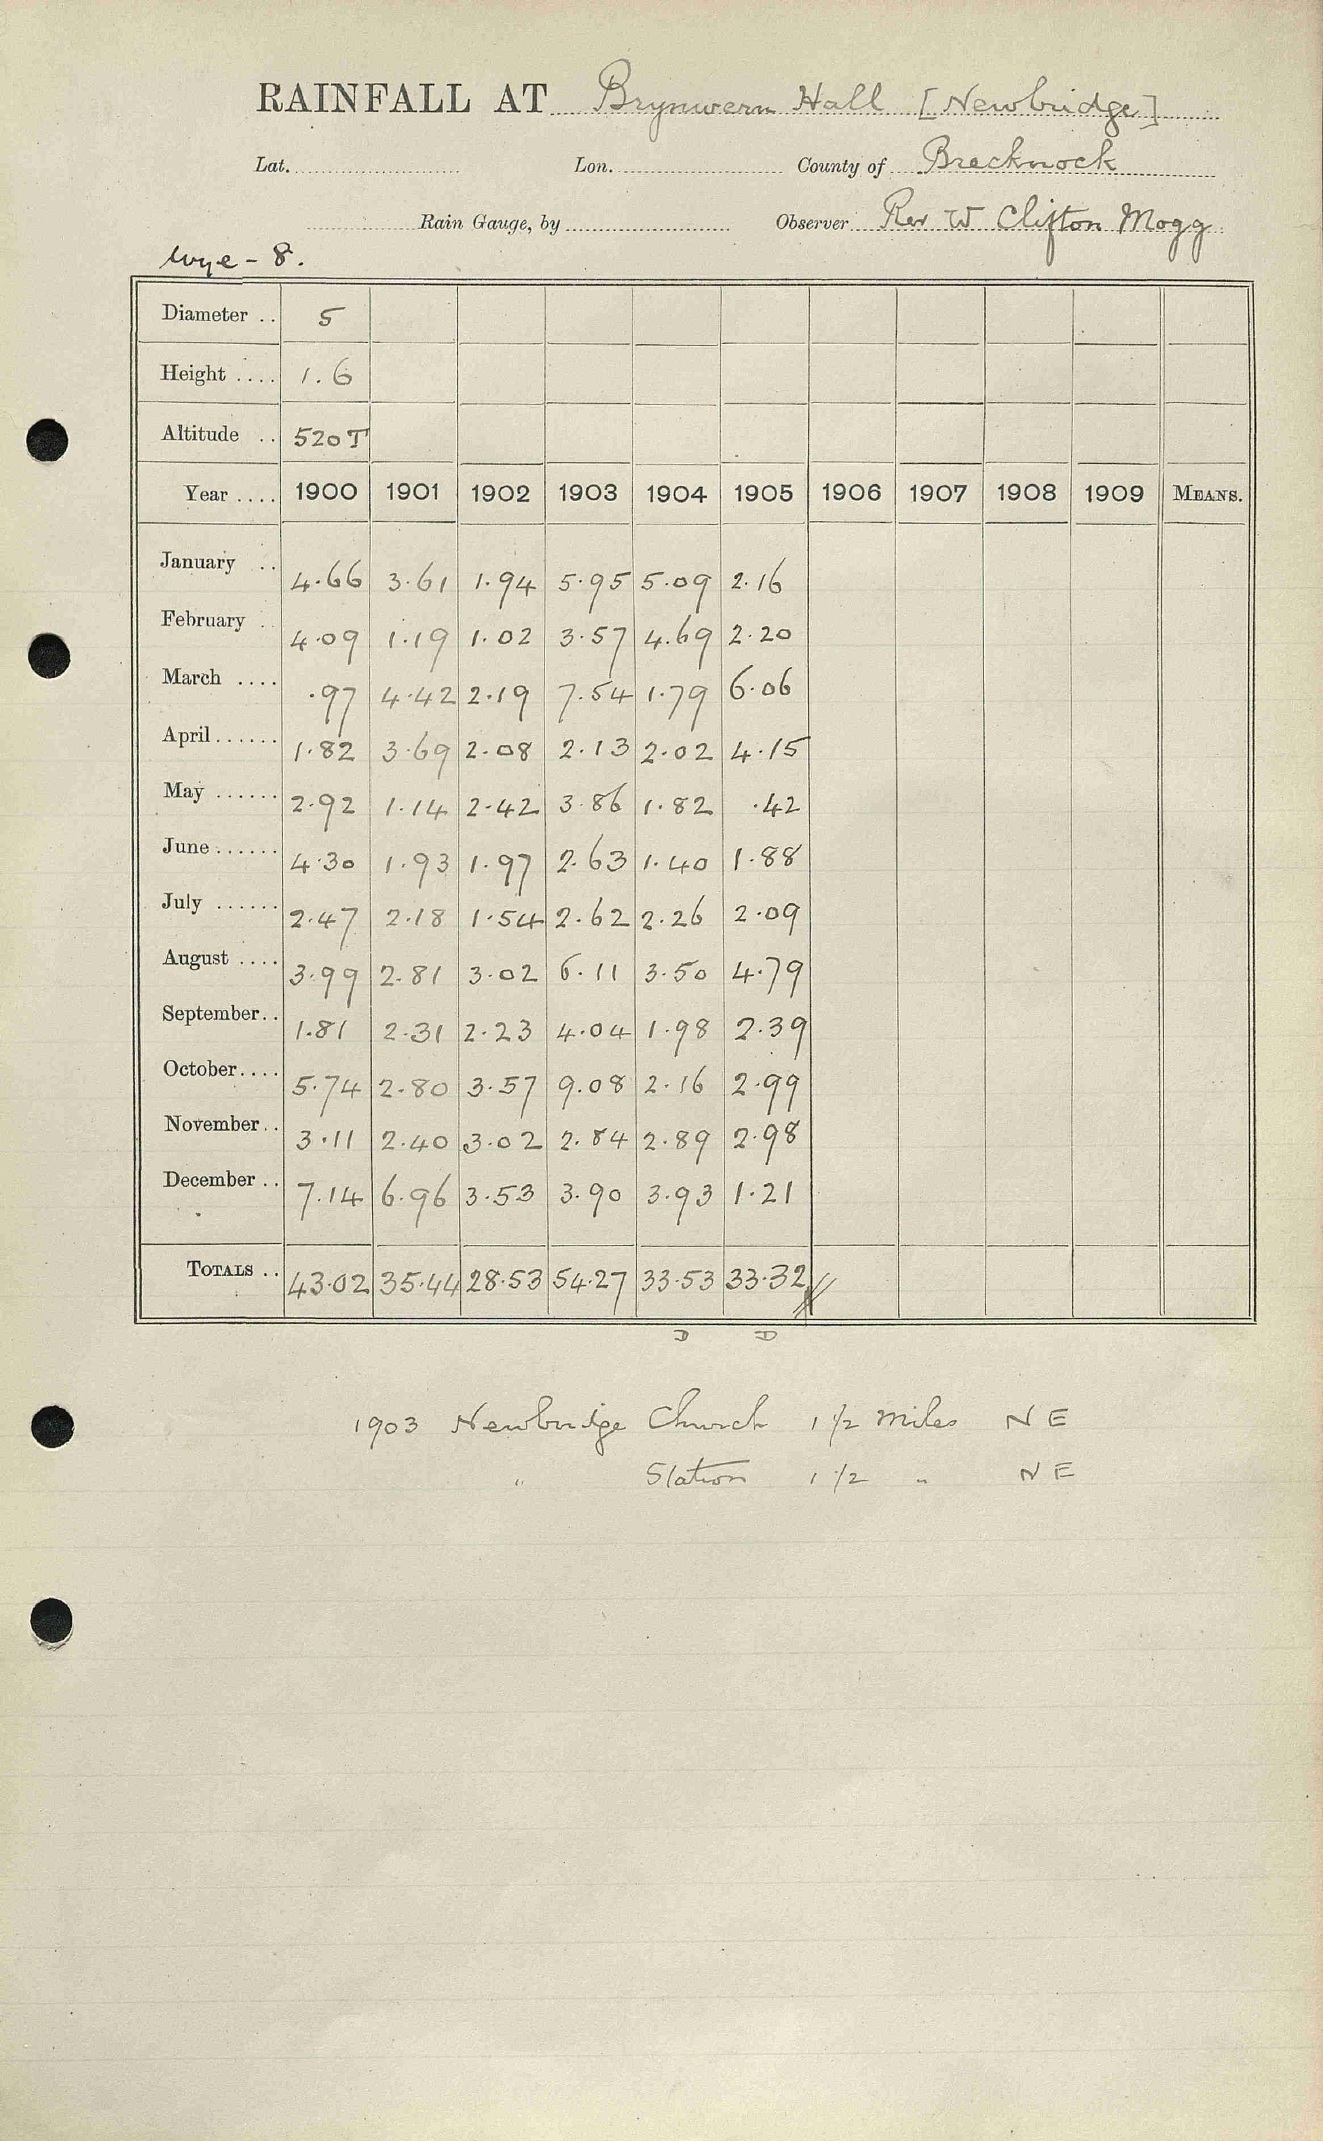 RAINFALL AT Brynwern Hall [Newbridge]
Lat. Lon. County of Brecknock
Rain Gauge, by Observer Rev W Clifton Mogg
Wye - 8.
Diameter .. 5
Height .... 1.6
Altitude .. 520T
Year .... 1900 1901 1902 1903 1904 1905 1906 1907 1908 1909 MEANS.
January .. 4.66 3.61 1.94 5.95 5.09 2.16
February .. 4.09 1.19 1.02 3.57 4.69 2.20
March .... .97 4.42 2.19 7.54 1.79 6.06
April ...... 1.82 3.69 2.08 2.13 2.02 4.15
May ...... 2.92 1.14 2.42 3.86 1.82 .42
June ...... 4.30 1.93 1.97 2.63 1.40 1.88
July ...... 2.47 2.18 1.54 2.62 2.26 2.09
August .... 3.99 2.81 3.02 6.11 3.50 4.79
September.. 1.81 2.31 2.23 4.04 1.98 2.39
October.... 5.74 2.80 3.57 9.08 2.16 2.99
November.. 3.11 2.40 3.02 2.84 2.89 2.98
December .. 7.14 6.96 3.53 3.90 3.93 1.21
TOTALS .. 43.02 35.44 28.53 54.27 33.53 33.32
D D
1903 Newbridge Church 1 1/2 miles NE
" Station 1 1/2 " NE